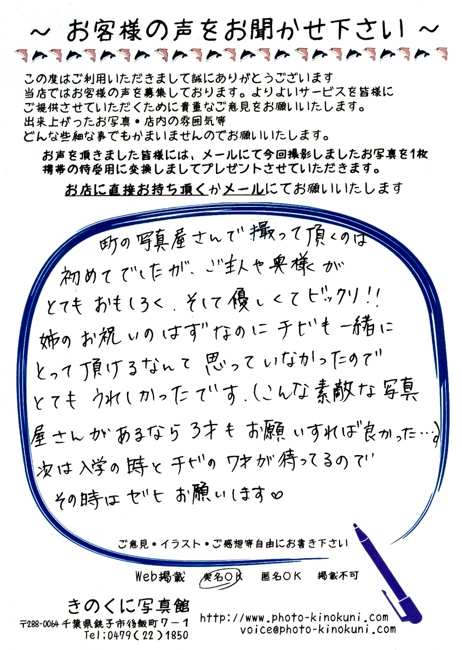 ～ お客様の声をお聞かせ下さい ～
この度はご利用いただきまして誠にありがとうございます
当店ではお客様の声を募集しております。よりよいサービスを皆様に
ご提供させていただくために貴重なご意見をお願いいたします。
出来上がったお写真・店内の雰囲気等
どんな些細な事でもかまいませんのでお願いいたします。
お声を頂きました皆様には、メールにて今回撮影しましたお写真を1枚
携帯の待受用に変換しましてプレゼントさせていただきます。
お店に直接お持ち頂くかメールにてお願いいたします
町の写真屋さんで撮って頂くのは
初めてでしたが、ご主人や奥様が
とてもおもしろく、そして優しくてビックリ!!
姉のお祝いのはずなのにチビも一緒に
とって頂けるなんて思っていなかったので
とてもうれしかったです。(こんな素敵な写真
屋さんがあるなら3才もお願いすれば良かった…)
次は入学の時とチビの7才が待ってるので
その時はゼヒお願いします♡
ご意見・イラスト・ご感想等自由にお書き下さい
Web掲載 実名OK 匿名OK 掲載不可
きのくに写真館
〒288-0064 千葉県銚子市後飯町7－1
Tel:0479(22)1850
http://www.photo-kinokuni.com/
voice@photo-kinokuni.com